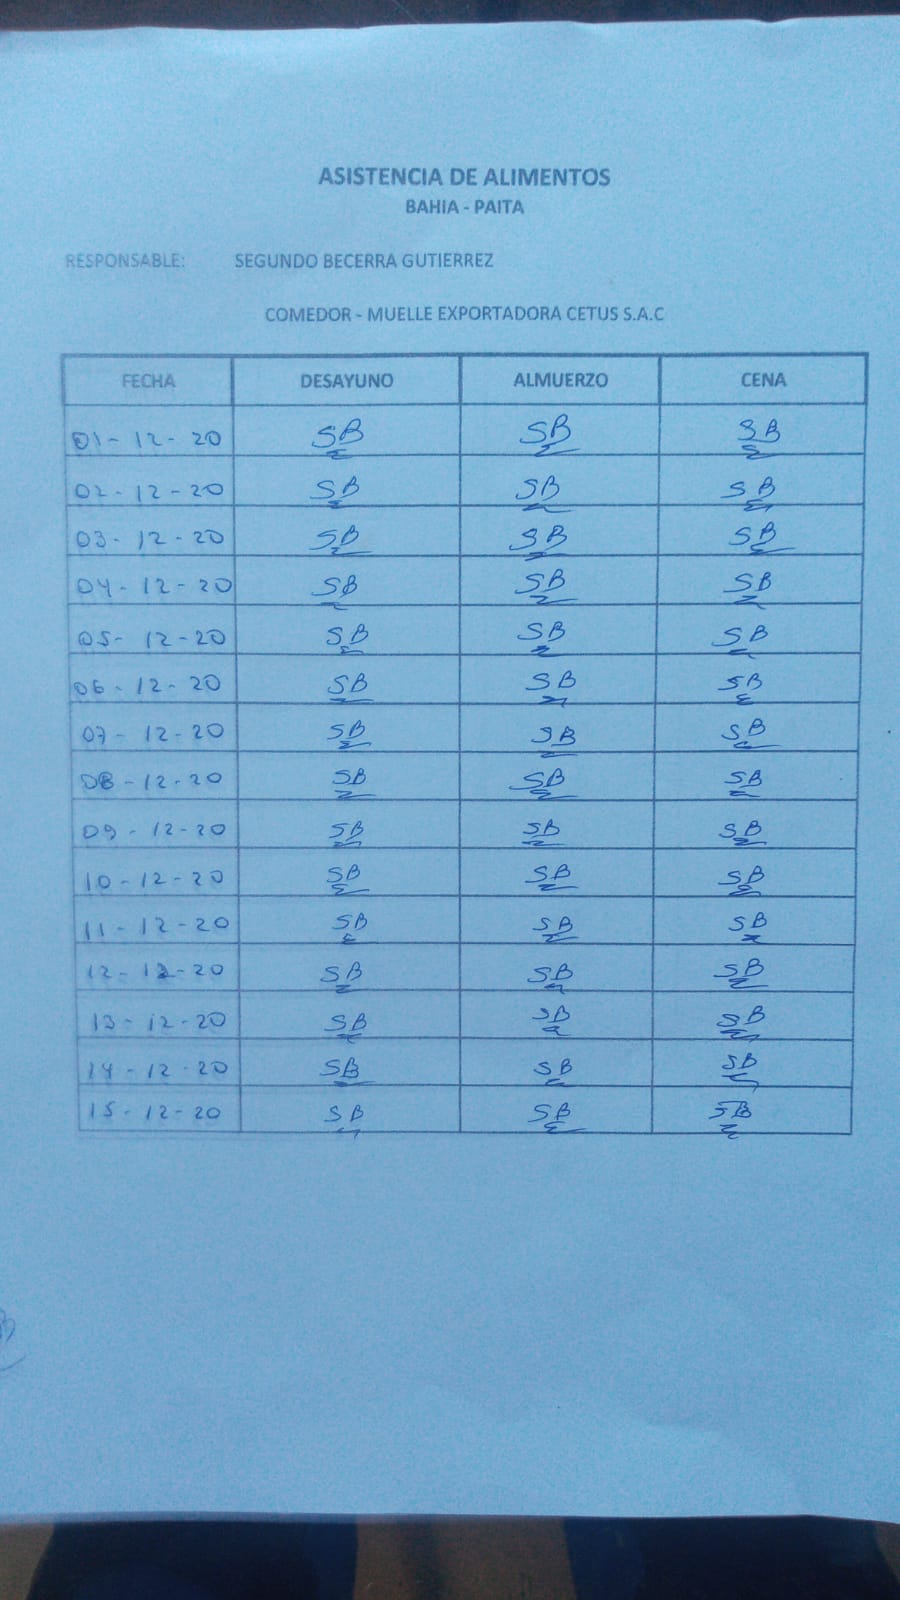 ASISTENCIA DE ALIMENTOS
BAHIA - PAITA
RESPONSABLE: SEGUNDO BECERRA GUTIERREZ
COMEDOR - MUELLE EXPORTADORA CETUS S.A.C
FECHA DESAYUNO ALMUERZO CENA
01-12-20 SB SB SB
02-12-20 SB SB SB
03-12-20 SB SB SB
04-12-20 SB SB SB
05-12-20 SB SB SB
06-12-20 SB SB SB
07-12-20 SB SB SB
08-12-20 SB SB SB
09-12-20 SB SB SB
10-12-20 SB SB SB
11-12-20 SB SB SB
12-12-20 SB SB SB
13-12-20 SB SB SB
14-12-20 SB SB SB
15-12-20 SB SB SB